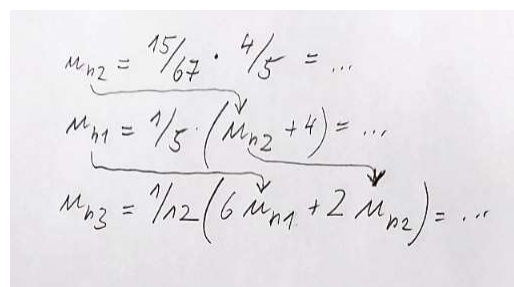 μn2 = 15/67 · 4/5 = ...
μn1 = 1/5 · (μn2 + 4) = ...
μn3 = 1/12 (6 μn1 + 2 μn2) = ...